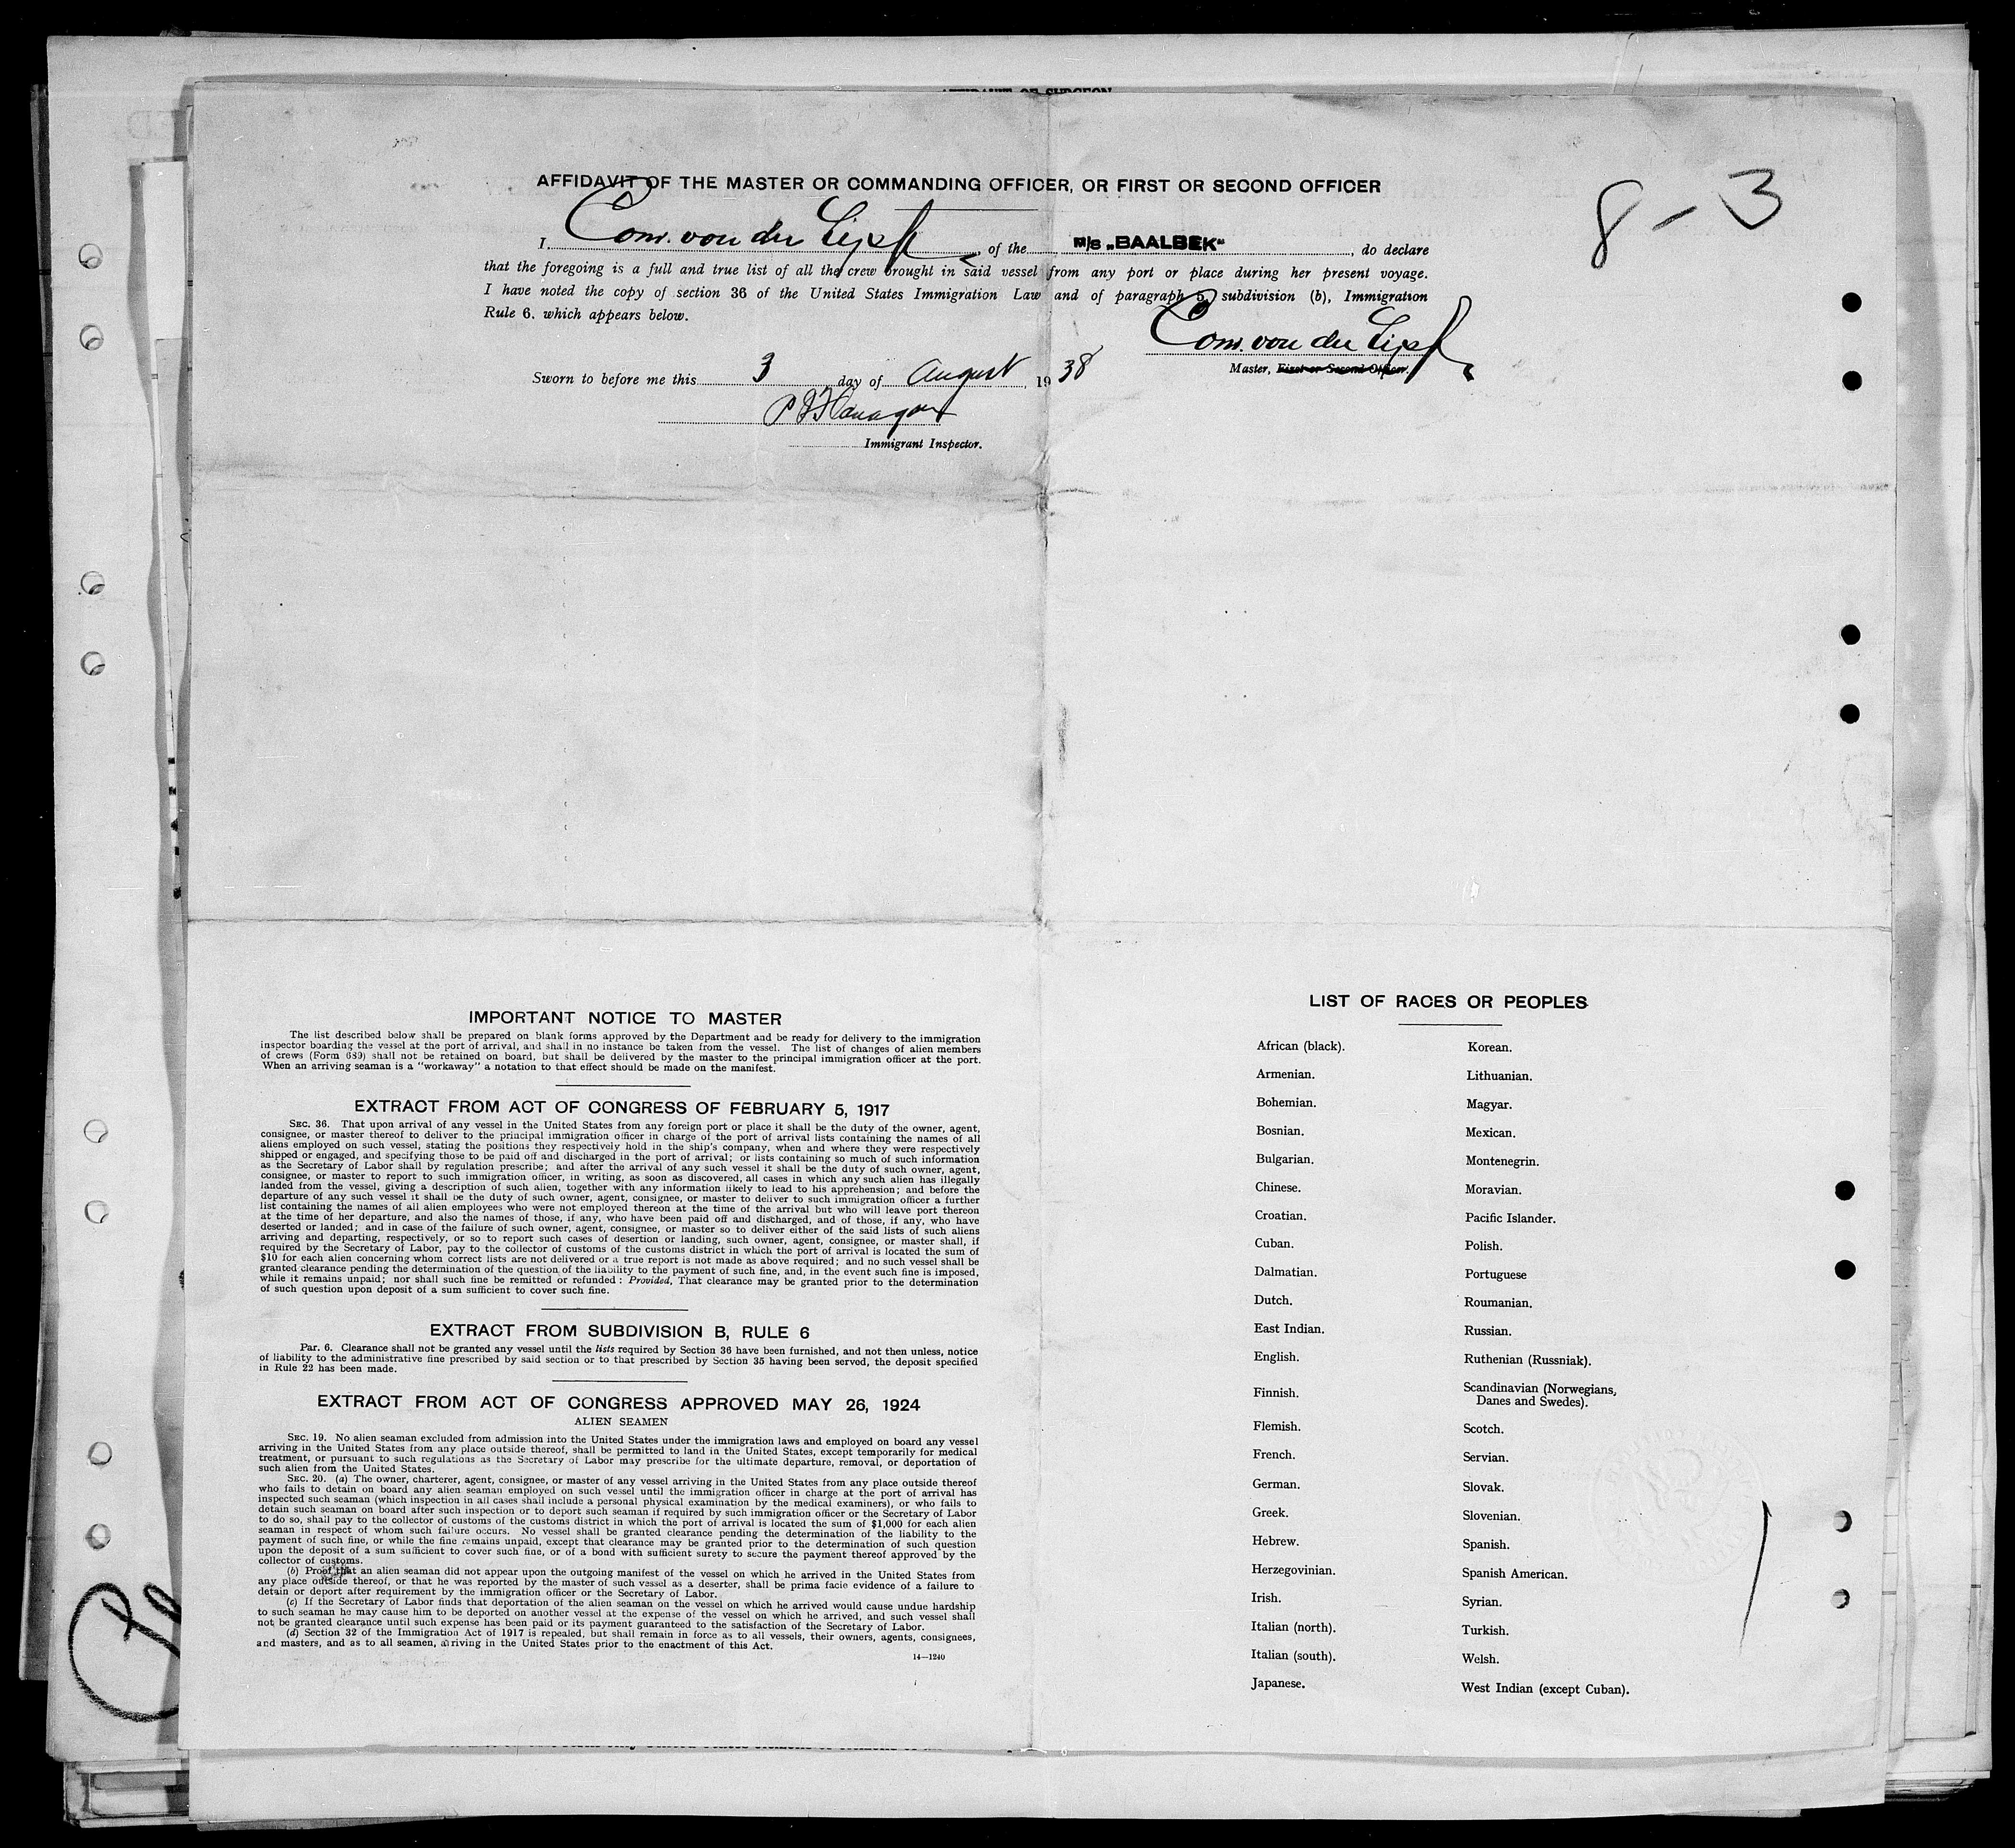 AFFIDAVIT OF SURGEON
AFFIDAVIT OF THE MASTER OR COMMANDING OFFICER, OR FIRST OR SECOND OFFICER
8-3
I, von der of the M/S „BAALBEK“, do declare
that the foregoing is a full and true list of all the crew brought in said vessel from any port or place during her present voyage.
I have noted the copy of section 36 of the United States Immigration Law and of paragraph 5, subdivision (b), Immigration
Rule 6, which appears below.
von der
Master, First or Second Officer.
Sworn to before me this 3 day of August, 1938
P J Flanagan
Immigrant Inspector.
IMPORTANT NOTICE TO MASTER
The list described below shall be prepared on blank forms approved by the Department and be ready for delivery to the immigration
inspector boarding the vessel at the port of arrival, and shall in no instance be taken from the vessel. The list of changes of alien members
of crews (Form 689) shall not be retained on board, but shall be delivered by the master to the principal immigration officer at the port.
When an arriving seaman is a "workaway" a notation to that effect should be made on the manifest.
EXTRACT FROM ACT OF CONGRESS OF FEBRUARY 5, 1917
SEC. 36. That upon arrival of any vessel in the United States from any foreign port or place it shall be the duty of the owner, agent,
consignee, or master thereof to deliver to the principal immigration officer in charge of the port of arrival lists containing the names of all
aliens employed on such vessel, stating the positions they respectively hold in the ship's company, when and where they were respectively
shipped or engaged, and specifying those to be paid off and discharged in the port of arrival; or lists containing so much of such information
as the Secretary of Labor shall by regulation prescribe; and after the arrival of any such vessel it shall be the duty of such owner, agent,
consignee, or master to report to such immigration officer, in writing, as soon as discovered, all cases in which any such alien has illegally
landed from the vessel, giving a description of such alien, together with any information likely to lead to his apprehension; and before the
departure of any such vessel it shall be the duty of such owner, agent, consignee, or master to deliver to such immigration officer a further
list containing the names of all alien employees who were not employed thereon at the time of the arrival but who will leave port thereon
at the time of her departure, and also the names of those, if any, who have been paid off and discharged, and of those, if any, who have
deserted or landed; and in case of the failure of such owner, agent, consignee, or master so to deliver either of the said lists of such aliens
arriving and departing, respectively, or so to report such cases of desertion or landing, such owner, agent, consignee, or master shall, if
required by the Secretary of Labor, pay to the collector of customs of the customs district in which the port of arrival is located the sum of
$10 for each alien concerning whom correct lists are not delivered or a true report is not made as above required; and no such vessel shall be
granted clearance pending the determination of the question of the liability to the payment of such fine, and, in the event such fine is imposed,
while it remains unpaid; nor shall such fine be remitted or refunded: Provided, That clearance may be granted prior to the determination
of such question upon deposit of a sum sufficient to cover such fine.
EXTRACT FROM SUBDIVISION B, RULE 6
Par. 6. Clearance shall not be granted any vessel until the lists required by Section 36 have been furnished, and not then unless, notice
of liability to the administrative fine prescribed by said section or to that prescribed by Section 35 having been served, the deposit specified
in Rule 22 has been made.
EXTRACT FROM ACT OF CONGRESS APPROVED MAY 26, 1924
ALIEN SEAMEN
SEC. 19. No alien seaman excluded from admission into the United States under the immigration laws and employed on board any vessel
arriving in the United States from any place outside thereof, shall be permitted to land in the United States, except temporarily for medical
treatment, or pursuant to such regulations as the Secretary of Labor may prescribe for the ultimate departure, removal, or deportation of
such alien from the United States.
SEC. 20. (a) The owner, charterer, agent, consignee, or master of any vessel arriving in the United States from any place outside thereof
who fails to detain on board any alien seaman employed on such vessel until the immigration officer in charge at the port of arrival has
inspected such seaman (which inspection in all cases shall include a personal physical examination by the medical examiners), or who fails to
detain such seaman on board after such inspection or to deport such seaman if required by such immigration officer or the Secretary of Labor
to do so, shall pay to the collector of customs of the customs district in which the port of arrival is located the sum of $1,000 for each alien
seaman in respect of whom such failure occurs. No vessel shall be granted clearance pending the determination of the liability to the
payment of such fine, or while the fine remains unpaid, except that clearance may be granted prior to the determination of such question
upon the deposit of a sum sufficient to cover such fine, or of a bond with sufficient surety to secure the payment thereof approved by the
collector of customs.
(b) Proof that an alien seaman did not appear upon the outgoing manifest of the vessel on which he arrived in the United States from
any place outside thereof, or that he was reported by the master of such vessel as a deserter, shall be prima facie evidence of a failure to
detain or deport after requirement by the immigration officer or the Secretary of Labor.
(c) If the Secretary of Labor finds that deportation of the alien seaman on the vessel on which he arrived would cause undue hardship
to such seaman he may cause him to be deported on another vessel at the expense of the vessel on which he arrived, and such vessel shall
not be granted clearance until such expense has been paid or its payment guaranteed to the satisfaction of the Secretary of Labor.
(d) Section 32 of the Immigration Act of 1917 is repealed, but shall remain in force as to all vessels, their owners, agents, consignees,
and masters, and as to all seamen, arriving in the United States prior to the enactment of this Act.
14—1240
LIST OF RACES OR PEOPLES
African (black).
Armenian.
Bohemian.
Bosnian.
Bulgarian.
Chinese.
Croatian.
Cuban.
Dalmatian.
Dutch.
East Indian.
English.
Finnish.
Flemish.
French.
German.
Greek.
Hebrew.
Herzegovinian.
Irish.
Italian (north).
Italian (south).
Japanese.
Korean.
Lithuanian.
Magyar.
Mexican.
Montenegrin.
Moravian.
Pacific Islander.
Polish.
Portuguese
Roumanian.
Russian.
Ruthenian (Russniak).
Scandinavian (Norwegians,
Danes and Swedes).
Scotch.
Servian.
Slovak.
Slovenian.
Spanish.
Spanish American.
Syrian.
Turkish.
Welsh.
West Indian (except Cuban).